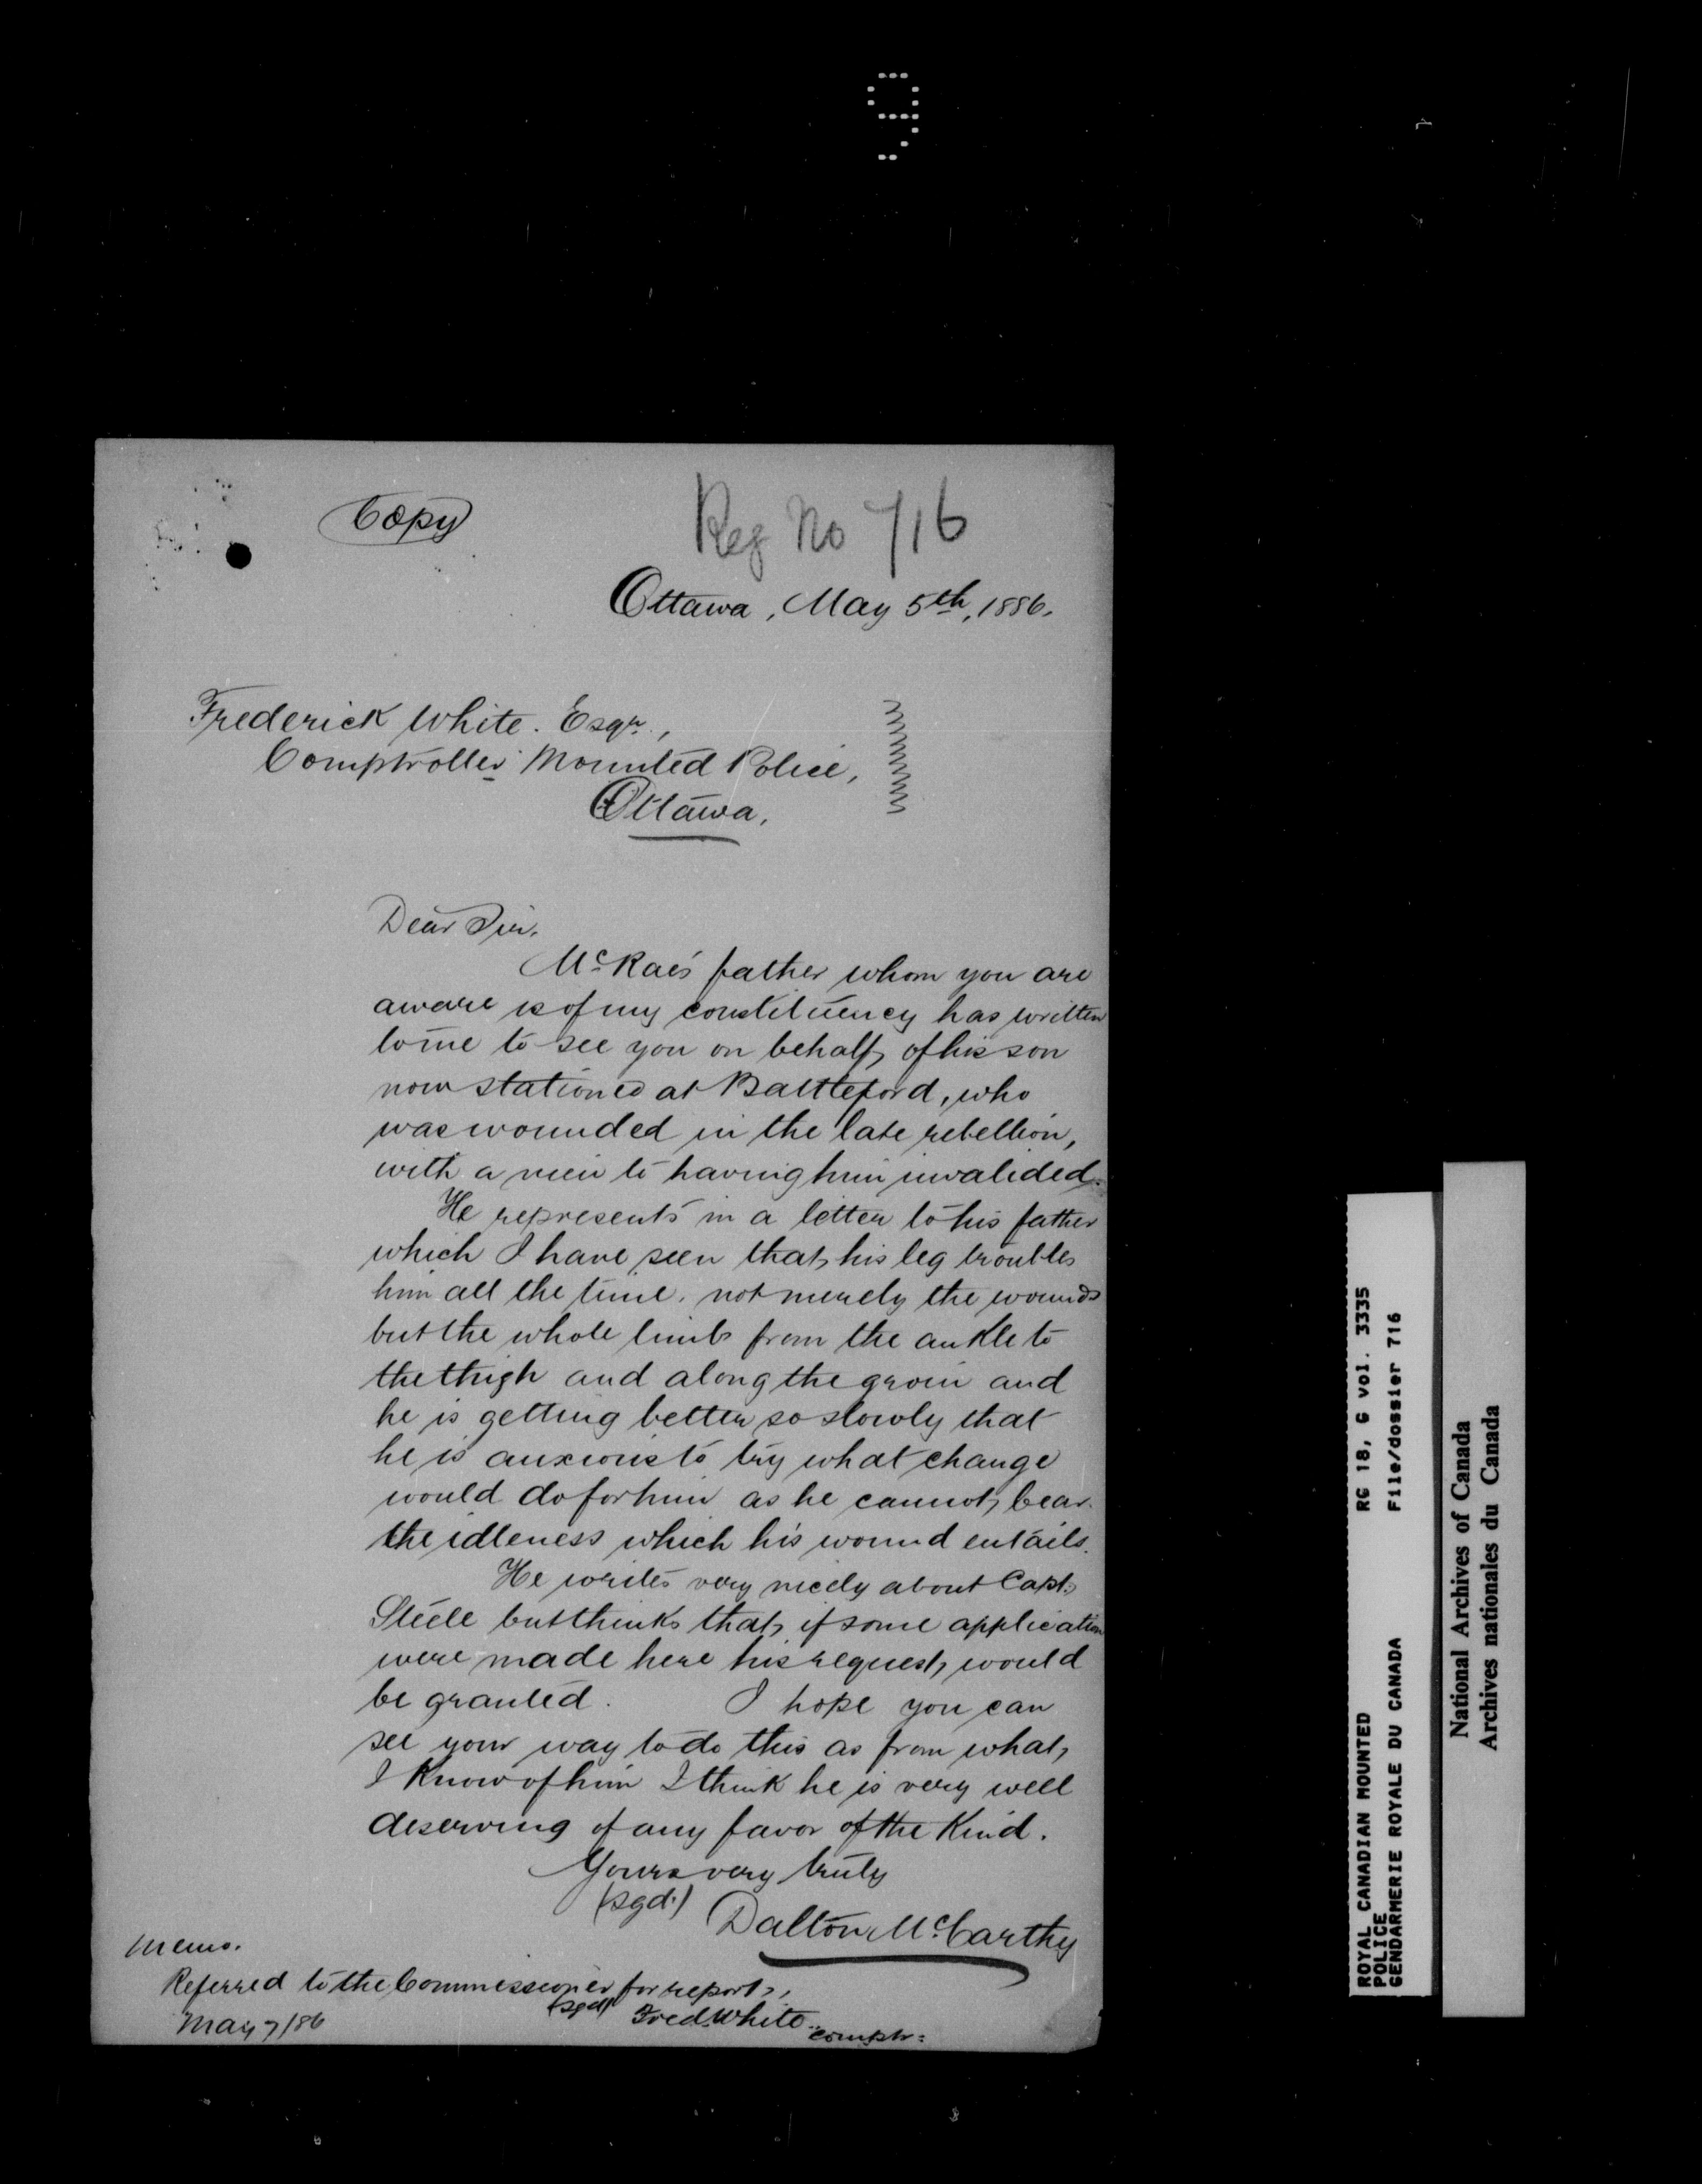 9
Copy
Reg No 716
Ottawa, May 5th, 1886.
Frederick White. Esqr.,
Comptroller Mounted Police,
Ottawa.
Dear Sir.
McRae's father whom you are
aware is of my constituency has written
to me to see you on behalf of his son
now stationed at Battleford, who
was wounded in the late rebellion,
with a view to having him invalided.
He represents in a letter to his father
which I have seen that his leg troubles
him all the time, not merely the wounds
but the whole limb from the ankle to
the thigh and along the groin and
he is getting better so slowly that
he is anxious to try what change
would do for him as he cannot bear
the idleness which his wound entails.
He writes very nicely about Capt.
Steele but thinks that if some application
were made here his request would
be granted. I hope you can
see your way to do this as from what
I know of him I think he is very well
deserving of any favor of the kind.
Yours very truly
(sgd.) Dalton McCarthy
Memo.
Referred to the Commissioner for report.
(sgd) Fred White
May 7/86 comptr:
ROYAL CANADIAN MOUNTED RG 18, G vol. 3335
POLICE
GENDARMERIE ROYALE DU CANADA File/dossier 716
National Archives of Canada
Archives nationales du Canada